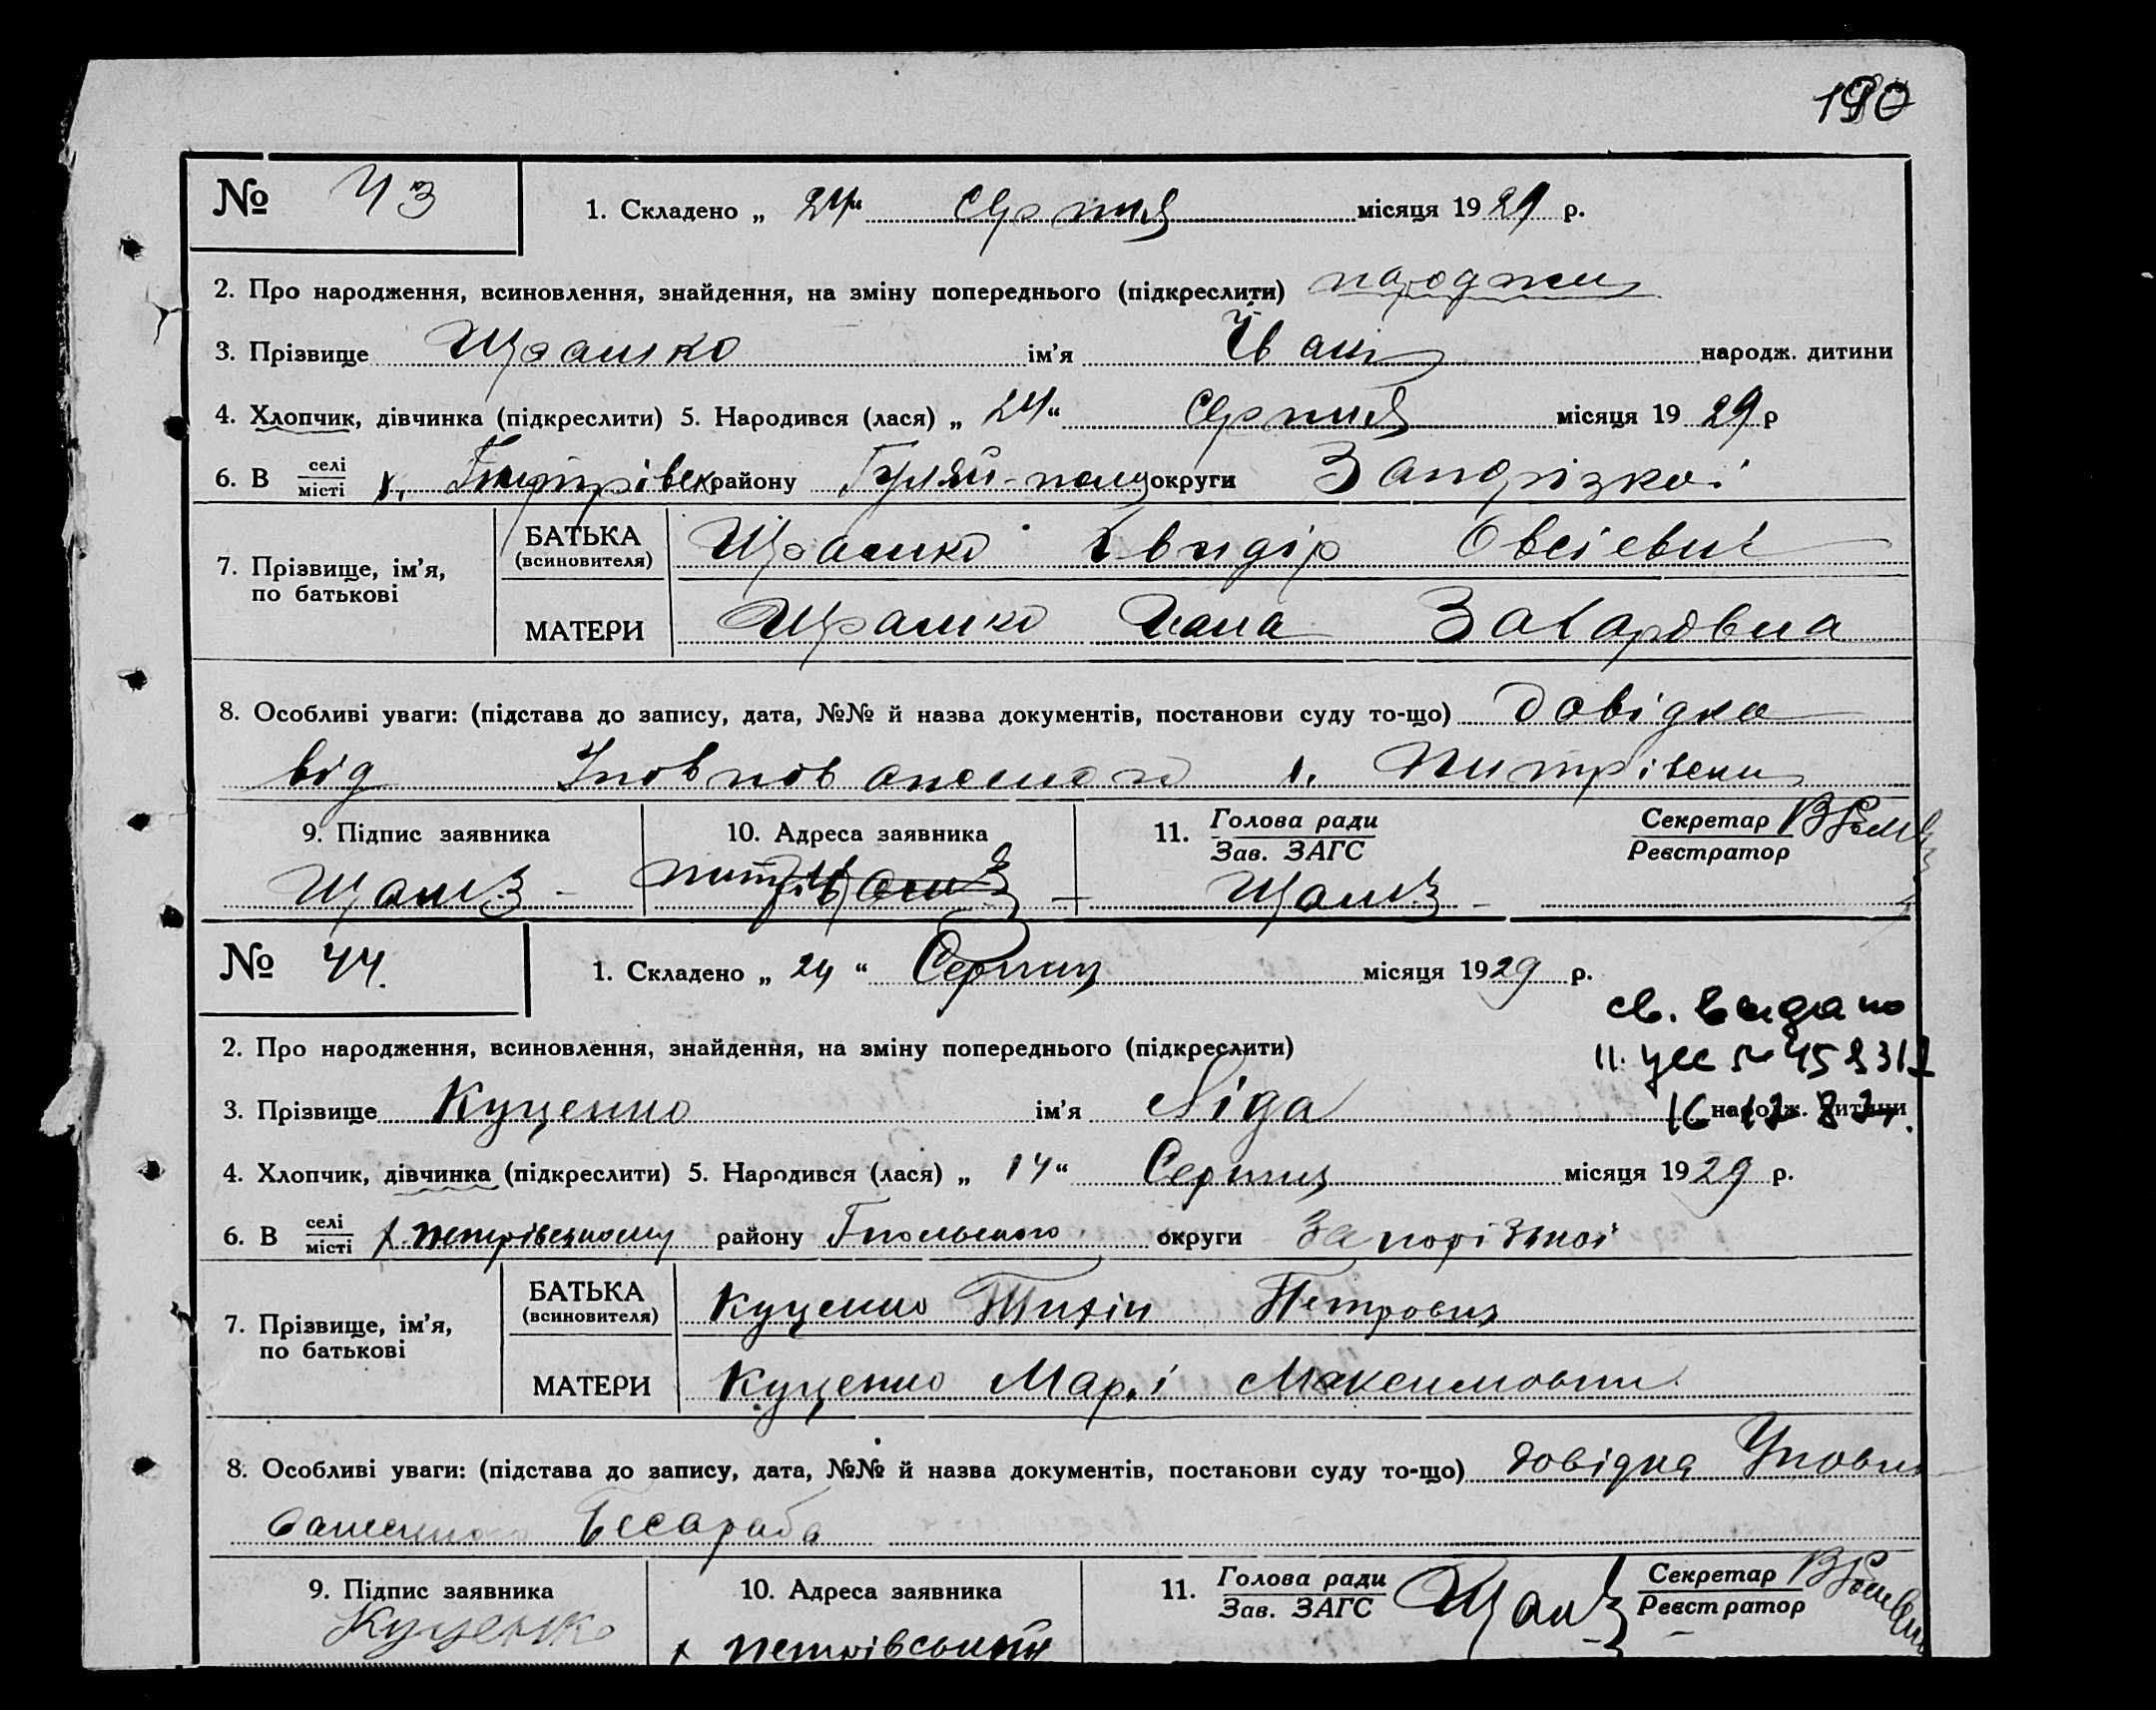 190
№ 43 1. Складено „ 24 “ Серпня місяця 1929 р.
2. Про народження, всиновлення, знайдення, на зміну попереднього (підкреслити)
3. Прізвище ім’я Іван народж. дитини
4. Хлопчик, дівчинка (підкреслити) 5. Народився (лася) „ 24 “ Серпня місяця 1929 р
6. В селі місті х. району Гуляй-полу округи Запорізкої
7. Прізвище, ім’я, по батькові
БАТЬКА (всиновителя) Овсієвич
МАТЕРИ Захаровна
8. Особливі уваги: (підстава до запису, дата, №№ й назва документів, постанови суду то-що) довідка
від
9. Підпис заявника 10. Адреса заявника 11. Голова ради Зав. ЗАГС Секретар Реєстратор
№ 44. 1. Складено „ 24 “ Серпня місяця 1929 р.
св. видано
2. Про народження, всиновлення, знайдення, на зміну попереднього (підкреслити)
3. Прізвище Куценко ім’я Ліда народж. дитини
4. Хлопчик, дівчинка (підкреслити) 5. Народився (лася) „ 14 “ Серпня місяця 1929 р.
6. В селі місті х петрівському району Гпольського округи Запорізької
7. Прізвище, ім’я, по батькові
БАТЬКА (всиновителя) Куценко Тихін Петрович
МАТЕРИ Куценко Марі Максимовни
8. Особливі уваги: (підстава до запису, дата, №№ й назва документів, постанови суду то-що) довідка Уповно
Бесараба
9. Підпис заявника 10. Адреса заявника 11. Голова ради Зав. ЗАГС Секретар Реєстратор
Куценко х петрівський